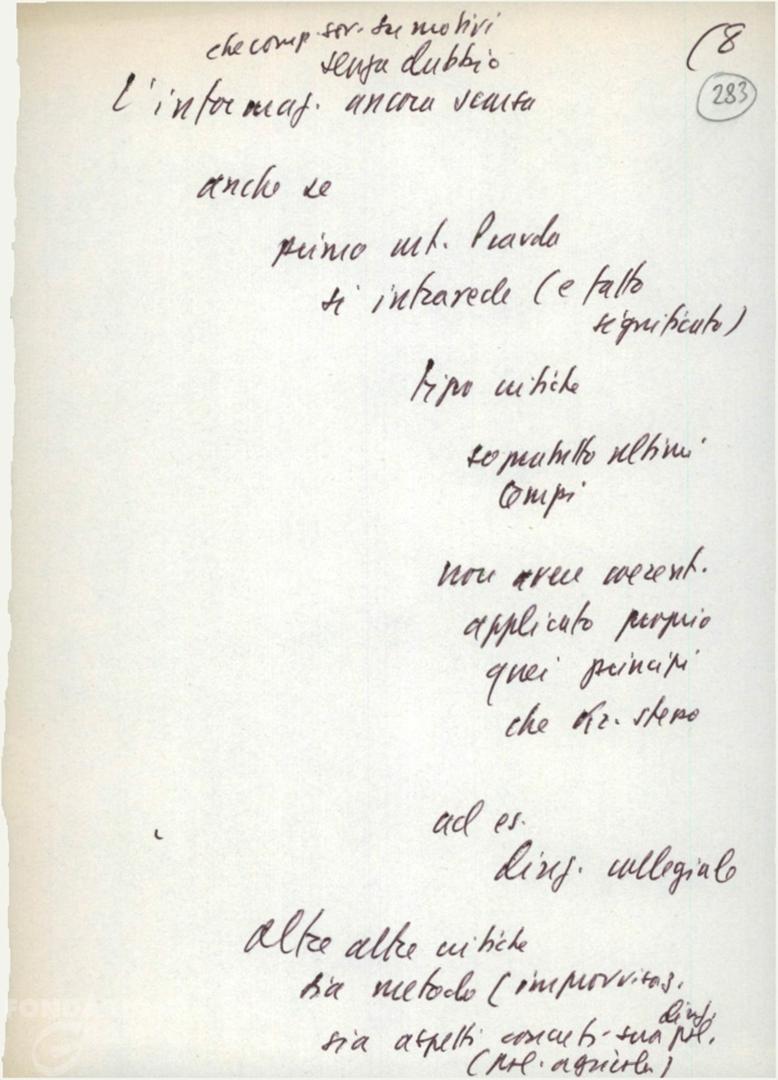 che comp. sov. su motivi
senza dubbio
(8
283
l'informaz. ancora scarsa
anche se
primo art. Pravda
si intravede (e fatto
significato)
tipo critiche
sopratutto ultimi
tempi
non avere coerent.
applicato proprio
quei principi
che stesso
ad es.
direz. collegiale
altre altre critiche
sia metodo (improvvisaz.
direz.
sia aspetti concreti sua pol.
(pol. agricola)
FONDA